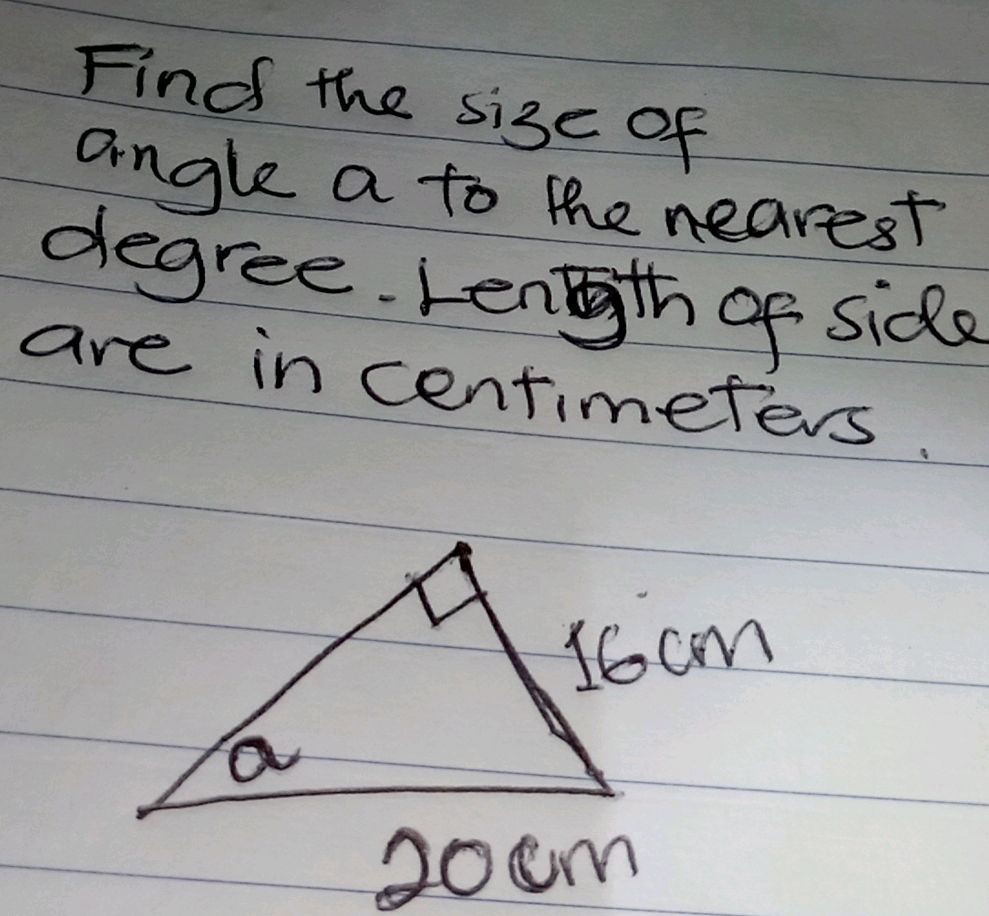 Find the size of
angle a to the nearest
degree. Length of side
are in centimeters.
16cm
a
20cm